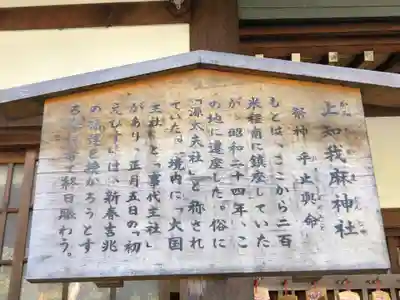 上知我麻神社
祭神 乎止與命
もとは、ここから二百
米程南に鎮座していた
が、昭和二十四年、こ
の地に遷座した。俗に
「源太夫社」と称され
ていた。境内に「大国
主社」と「事代主社」
があり、正月五日の「初
えびす」は、新春吉兆
の福運を授かろうとす
終日賑わう。